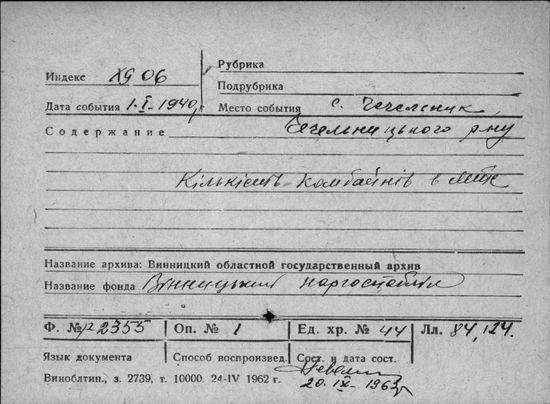 Рубрика
Индекс XG 06
Подрубрика
Дата события 1.I.1940 р Место события с. Чечельник
Содержание Чечельницького р-ну
Кількість комбайнів в МТС
Название архива: Винницкий областной государственный архив
Название фонда Вінницький
Ф. № р 2355 Оп. № 1 Ед. хр. № 44 Лл. 84, 124.
Язык документа Способ воспроизвед. Сост. и дата сост.
Виноблтип., з. 2739, т. 10000. 24-IV 1962 г.
20.IX-1963р